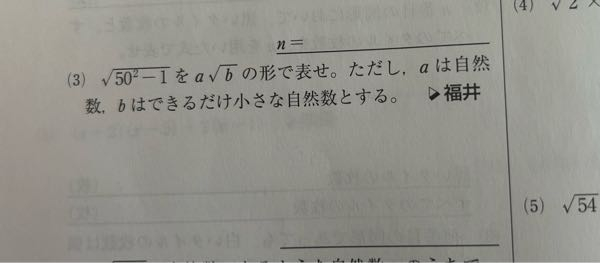 (4) √2 ×
n=
(3) √50²−1 を a√b の形で表せ。ただし, a は自然
数, b はできるだけ小さな自然数とする。 福井
(5) √54